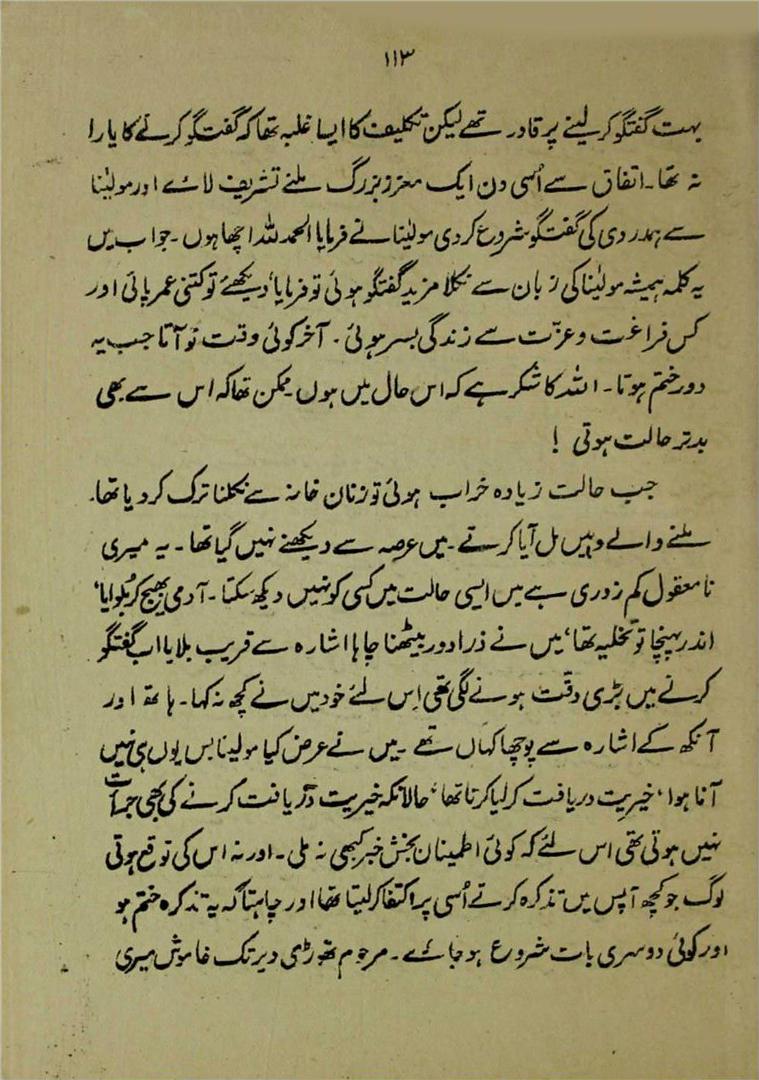 ۱۱۳
بہت گفتگو کر لینے پر قادر تھے لیکن تکلیف کا ایسا غلبہ تھا کہ گفتگو کرنے کا یارا
نہ تھا۔ اتفاق سے اُسی دن ایک معزز بزرگ ملنے تشریف لائے اور مولیٰنا
سے ہمدردی کی گفتگو شروع کردی مولیٰنا نے فرمایا الحمدللہ اچھا ہوں۔ جواب میں
یہ کلمہ ہمیشہ مولیٰنا کی زبان سے نکلا مزید گفتگو ہوئی تو فرمایا، دیکھئے تو کتنی عمر پائی اور
کس فراغت و عزّت سے زندگی بسر ہوئی۔ آخر کوئی وقت تو آتا جب یہ
دور ختم ہوتا۔ اللہ کا شکر ہے کہ اس حال میں ہوں ممکن تھا کہ اس سے بھی
بدتر حالت ہوتی !
جب حالت زیادہ خراب ہوئی تو زنان خانہ سے نکلنا ترک کر دیا تھا۔
ملنے والے وہیں مل آیا کرتے۔ میں عرصہ سے دیکھنے نہیں گیا تھا۔ یہ میری
نامعقول کم زوری ہے میں ایسی حالت میں کسی کو نہیں دیکھ سکتا۔ آدمی بھیج کر بُلوایا،
اندر پہنچا تو تخلیہ تھا، میں نے ذرا دور بیٹھنا چاہا اشارہ سے قریب بلایا اب گفتگو
کرنے میں بڑی دقّت ہونے لگی تھی اِس لئے خود میں نے کچھ نہ کہا۔ ہاتھ اور
آنکھ کے اشارہ سے پوچھا کہاں تھے ۔ میں نے عرض کیا مولینا بس یوں ہی نہیں
آنا ہوا، خیریت دریافت کر لیا کرتا تھا، حالانکہ خیریت دریافت کرنے کی بھی جرأت
نہیں ہوتی تھی اس لئے کہ کوئی اطمینان بخش خبر کبھی نہ ملی۔ اور نہ اس کی توقع ہوتی
لوگ جو کچھ آپس میں تذکرہ کرتے اُسی پر اکتفا کر لیتا تھا اور چاہتا کہ یہ تذکرہ ختم ہو
اور کوئی دوسری بات شروع ہو جائے۔ مرحوم تھوڑی دیر تک خاموش میری